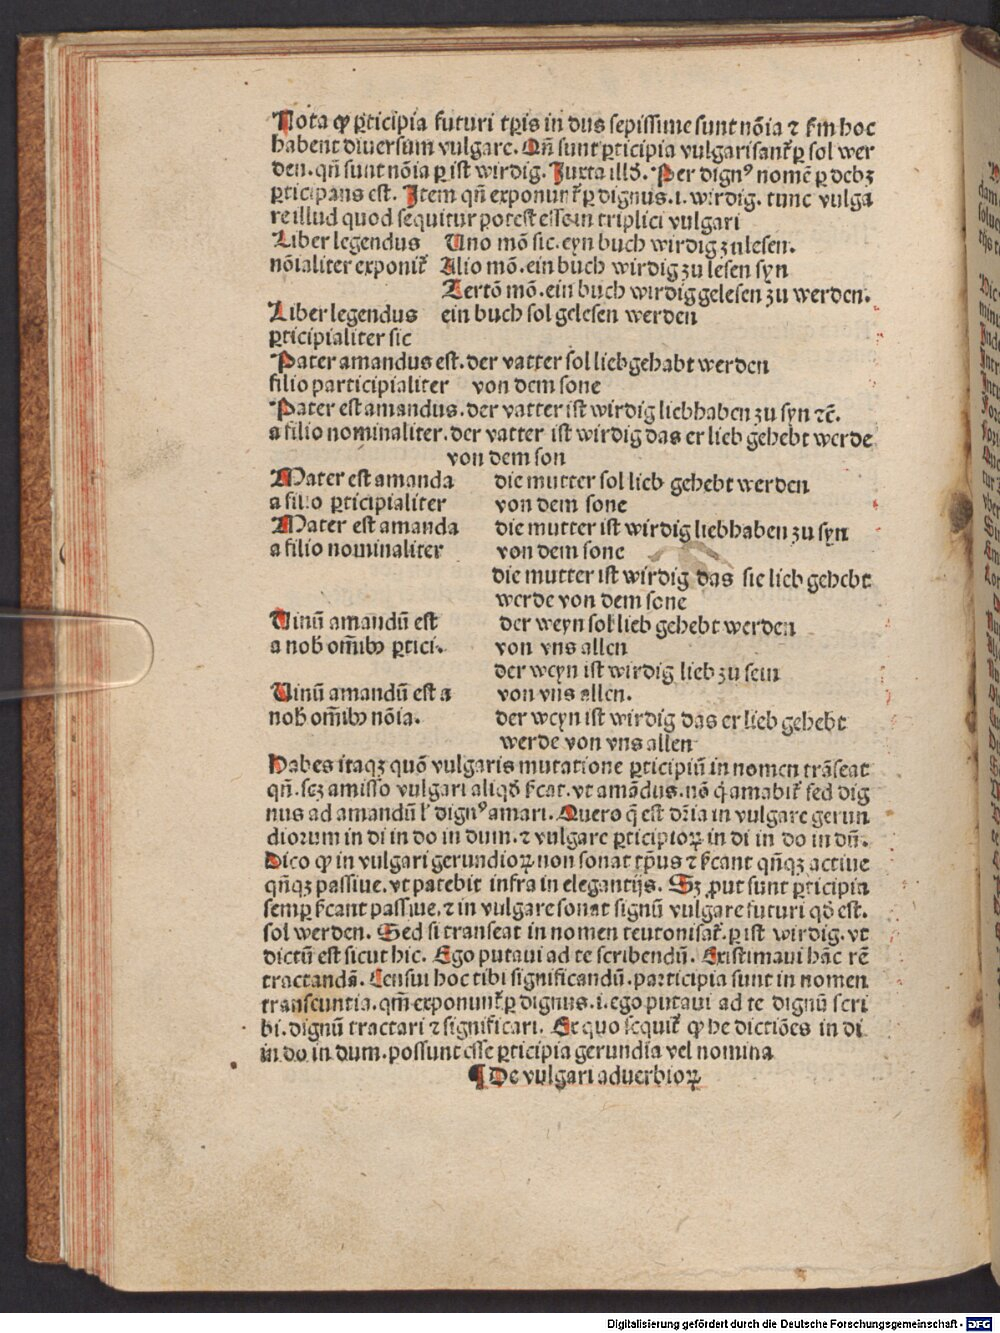 Nota qꝫ ꝑticipia futuri tꝑis in dus sepissime sunt nōia ⁊ ẜm hoc
habent diuersum vulgare. Qñ sunt ꝑticipia vulgarisant᷑ ꝑ sol wer
den. qñ sunt nōia ꝑ ist wirdig. Iuxta illđ. Per dignꝰ nomē ꝑ debꝫ
ꝑticipans est. Item qñ exponunt᷑ ꝑ dignus .i. wirdig. tunc vulga
re illud quod sequitur potest esse in triplici vulgari
Liber legendus Uno mō sic. eyn buch wirdig zu lesen.
nōialiter exponit᷑ Alio mō. ein buch wirdig zu lesen syn
Tertō mō. ein buch wirdig gelesen zu werden.
Liber legendus ein buch sol gelesen werden
ꝑticipialiter sic
Pater amandus est. der vatter sol liebgehabt werden
filio participialiter von dem sone
Pater est amandus. der vatter ist wirdig liebhaben zu syn ⁊c̄.
a filio nominaliter. der vatter ist wirdig das er lieb gehebt werde
von dem son
Mater est amanda die mutter sol lieb gehebt werden
a filio ꝑticipialiter von dem sone
Mater est amanda die mutter ist wirdig liebhaben zu syn
a filio nominaliter von dem sone
die mutter ist wirdig das sie lieb gehebt
werde von dem sone
Uinū amandū est der weyn sol lieb gehebt werden
a nob̄ om̄ibꝫ ꝑtici. von vns allen
der weyn ist wirdig lieb zu sein
Uinū amandū est a von vns allen.
nob̄ om̄ibꝫ nōia. der weyn ist wirdig das er lieb gehebt
werde von vns allen
Habes itaqꝫ quō vulgaris mutatione ꝑticipiū in nomen trāseat
qñ. scꝫ amisso vulgari aliqđ ẜcat. vt amādus. nō q̄ amabit᷑ sed dig
nus ad amandū ł dignꝰ amari. Quero q̄ est dr̄ia in vulgare gerun
diorum in di in do in dum. ⁊ vulgare ꝑticipioꝝ in di in do in dū.
Dico qꝫ in vulgari gerundioꝝ non sonat tp̄us ⁊ ẜcant qñqꝫ actiue
qñqꝫ passiue. vt patebit infra in elegantijs. Sꝫ ꝓut sunt ꝑticipia
semꝑ ẜcant passiue. ⁊ in vulgare sonat signū vulgare futuri qđ est.
sol werden. Sed si transeat in nomen teutonisat᷑. ꝑ ist wirdig. vt
dictū est sicut hic. Ego putaui ad te scribendū. Existimaui hāc rē
tractandā. Censui hoc tibi significandū. participia sunt in nomen
transeuntia. qm̄ exponunt᷑ ꝑ dignus .i. ego putaui ad te dignū scri
bi. dignū tractari ⁊ significari. Ex quo sequit᷑ qꝫ he dictiōes in di
in do in dum. possunt esse ꝑticipia gerundia vel nomina
¶ De vulgari aduerbioꝝ
Digitalisierung gefördert durch die Deutsche Forschungsgemeinschaft - DFG